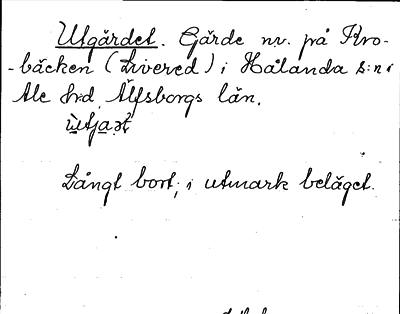 Utgärdet. Gärde nv. på Kro-
-bäcken (Livered) i Hålanda s:n i
Ale hd. Älfsborgs län.
Långt bort, i utmark beläget.